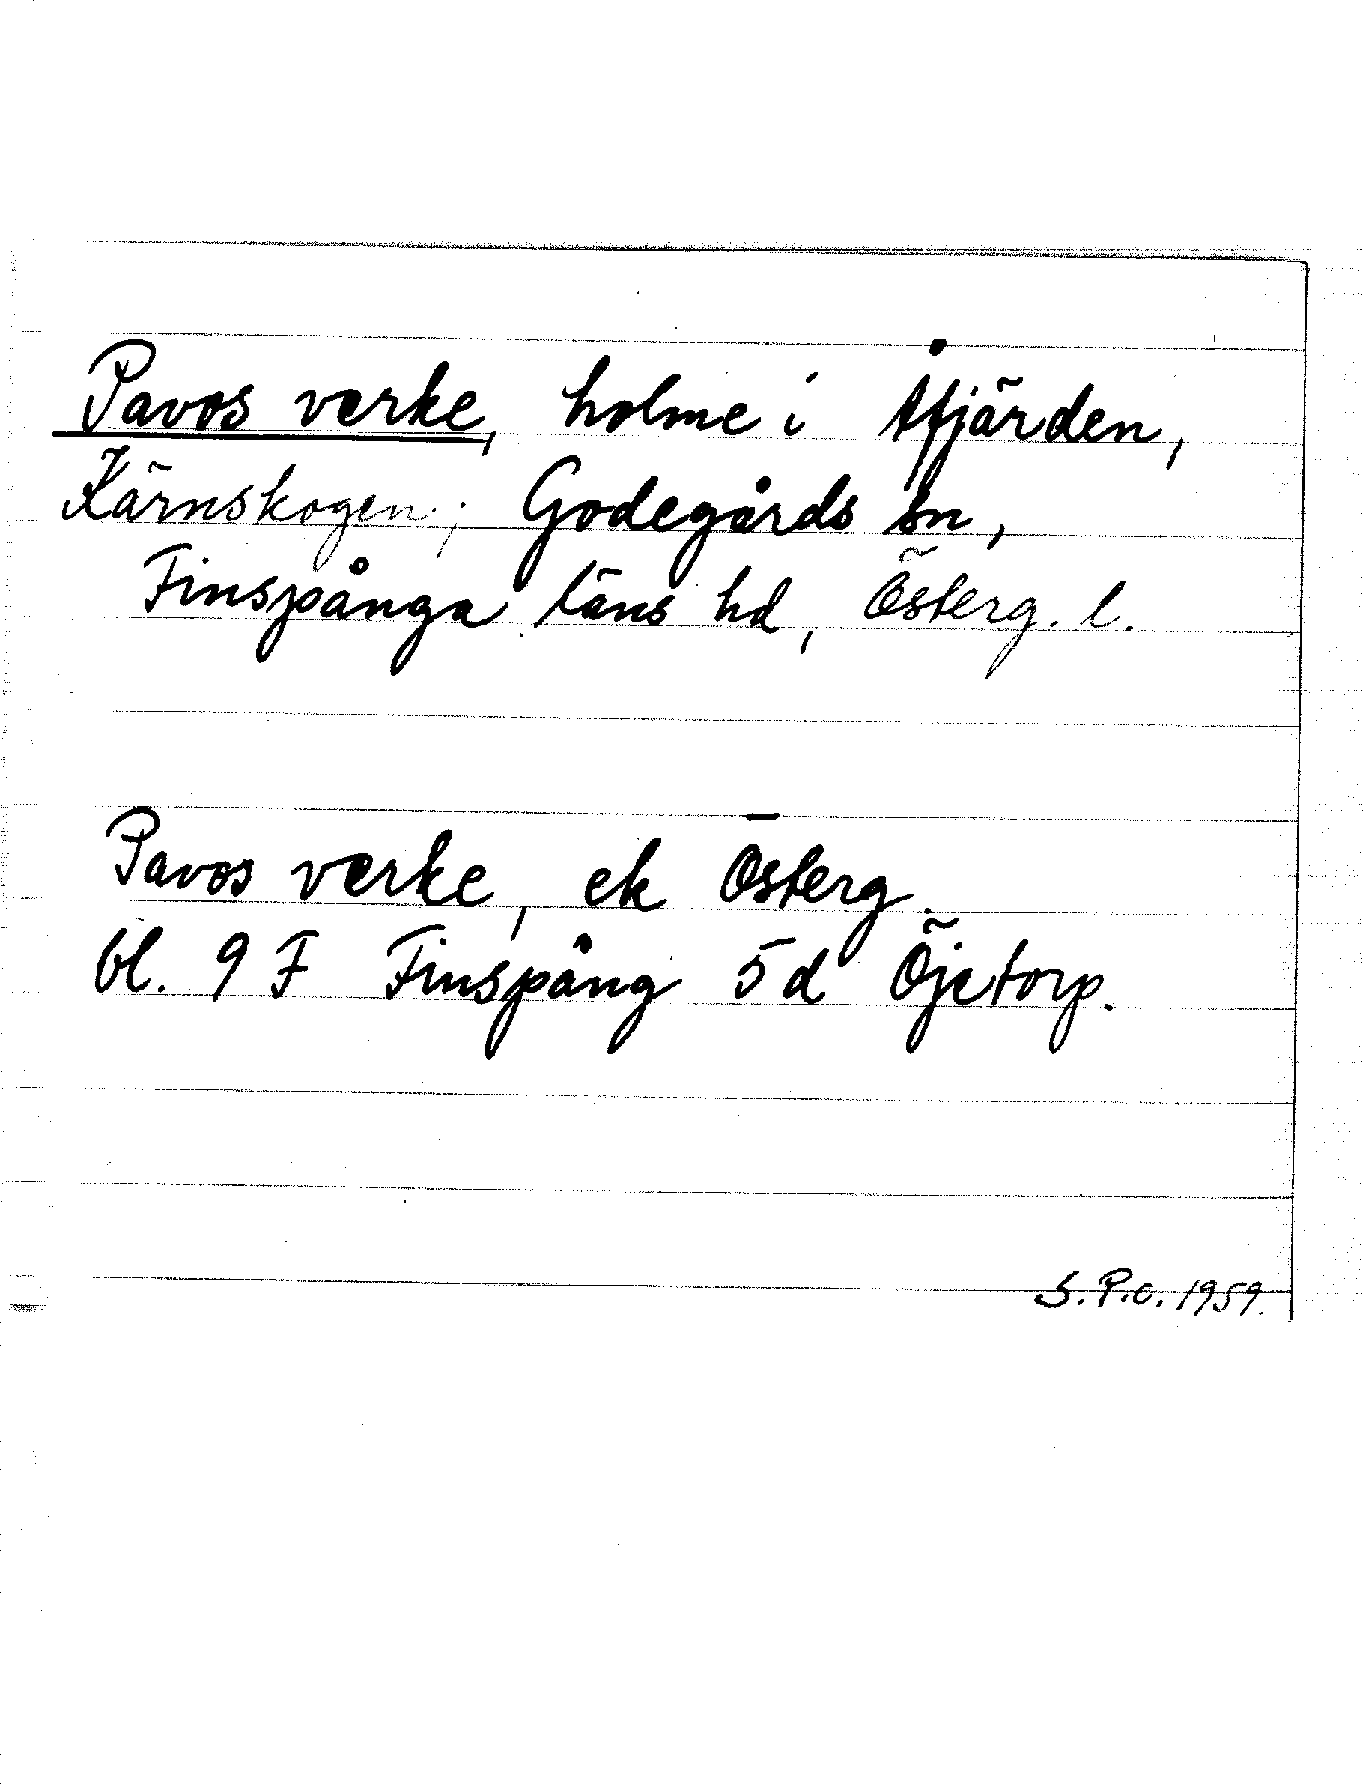 Pavos verke, holme i Åfjärden,
Kärnskogen; Godegårds sn,
Finspånga läns hd, Österg. l.
Pavos verke, ek Österg.
bl. 9 F Finspång 5d Öjetorp.
S.P.o. 1959.